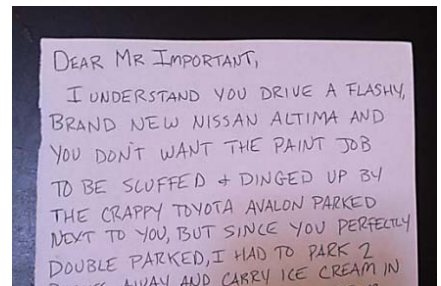 DEAR MR IMPORTANT,
I UNDERSTAND YOU DRIVE A FLASHY,
BRAND NEW NISSAN ALTIMA AND
YOU DON'T WANT THE PAINT JOB
TO BE SCUFFED + DINGED UP BY
THE CRAPPY TOYOTA AVALON PARKED
NEXT TO YOU, BUT SINCE YOU PERFECTLY
DOUBLE PARKED, I HAD TO PARK 2
AWAY AND CARRY ICE CREAM IN